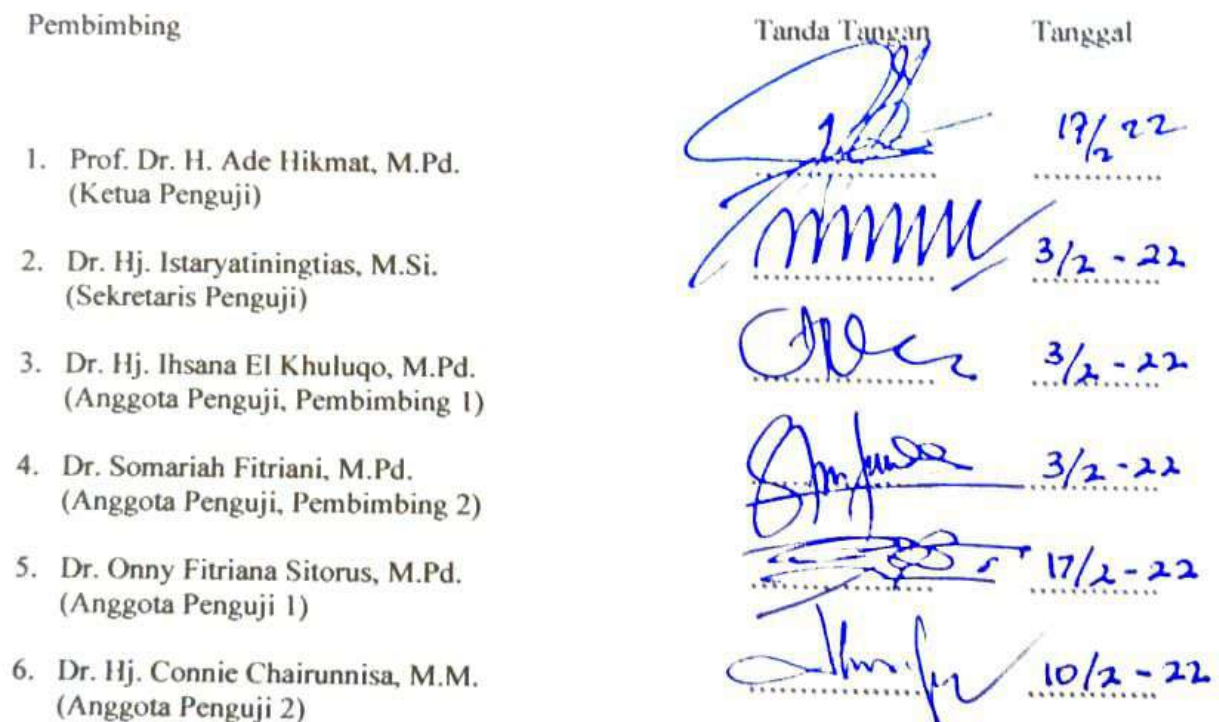 Pembimbing Tanda Tangan Tanggal
1. Prof. Dr. H. Ade Hikmat, M.Pd. 17/2 22
(Ketua Penguji)
2. Dr. Hj. Istaryatiningtias, M.Si. 3/2 - 22
(Sekretaris Penguji)
3. Dr. Hj. Ihsana El Khuluqo, M.Pd. 3/2 - 22
(Anggota Penguji, Pembimbing 1)
4. Dr. Somariah Fitriani, M.Pd. 3/2 - 22
(Anggota Penguji, Pembimbing 2)
5. Dr. Onny Fitriana Sitorus, M.Pd. 17/2 - 22
(Anggota Penguji 1)
6. Dr. Hj. Connie Chairunnisa, M.M. 10/2 - 22
(Anggota Penguji 2)